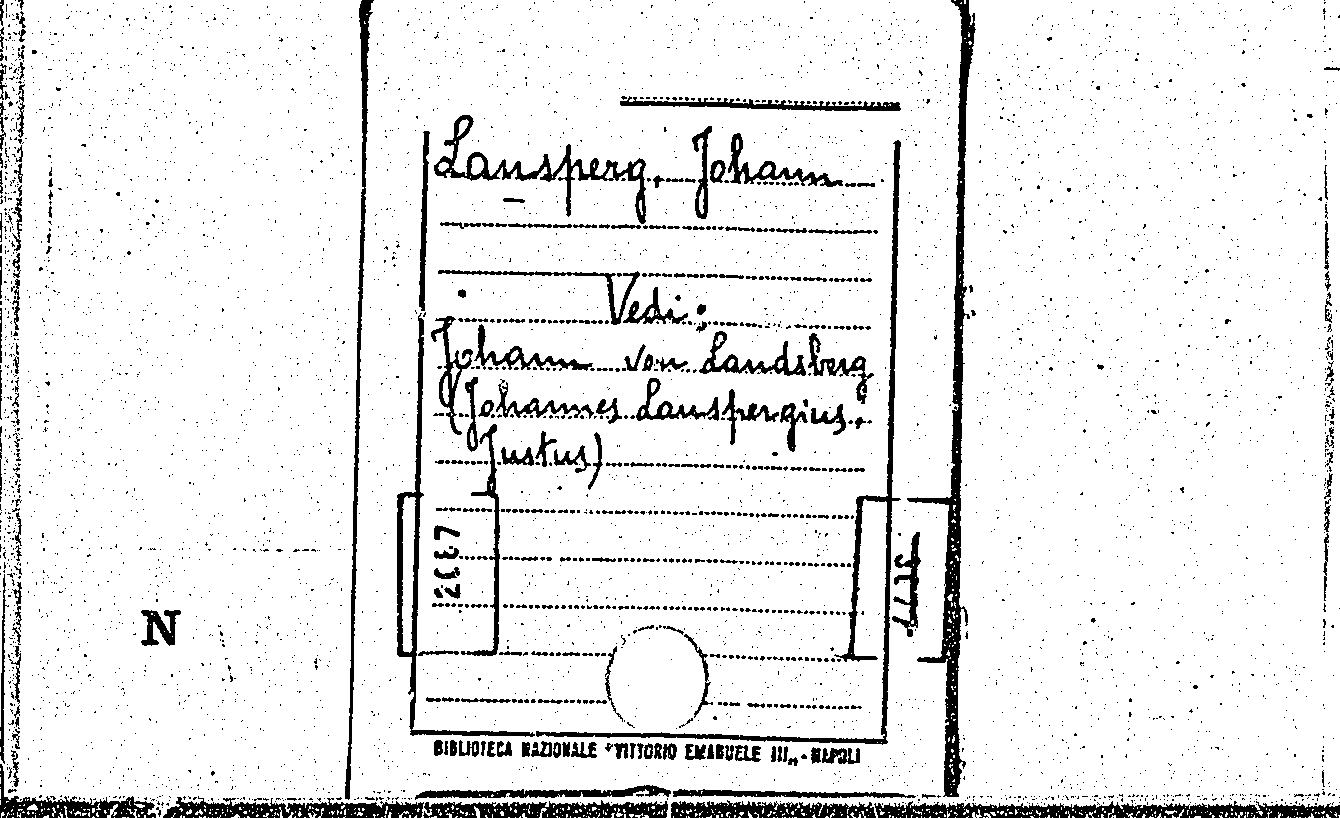 Lansperg, Johann
Vedi:
Johann von Landsberg
(Johannes Lanspergius,
Justus)
N
BIBLIOTECA NAZIONALE "VITTORIO EMANUELE III„ - NAPOLI